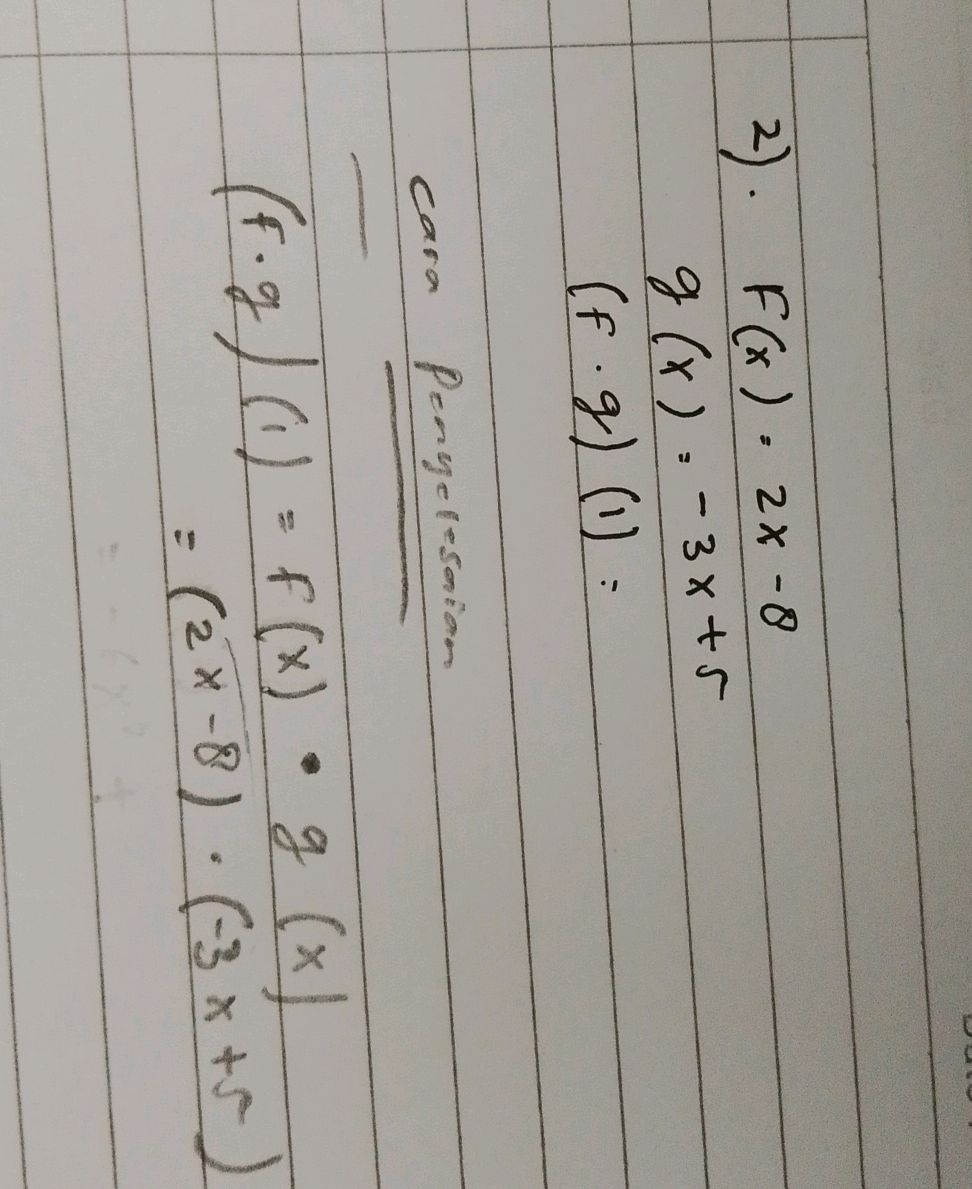 2). F(x) = 2x - 8
g(x) = - 3x + 5
(f . g) (1) =
cara Penyelesaian
(f . g) (1) = f(x) • g (x)
= (2x - 8) . (-3x + 5)